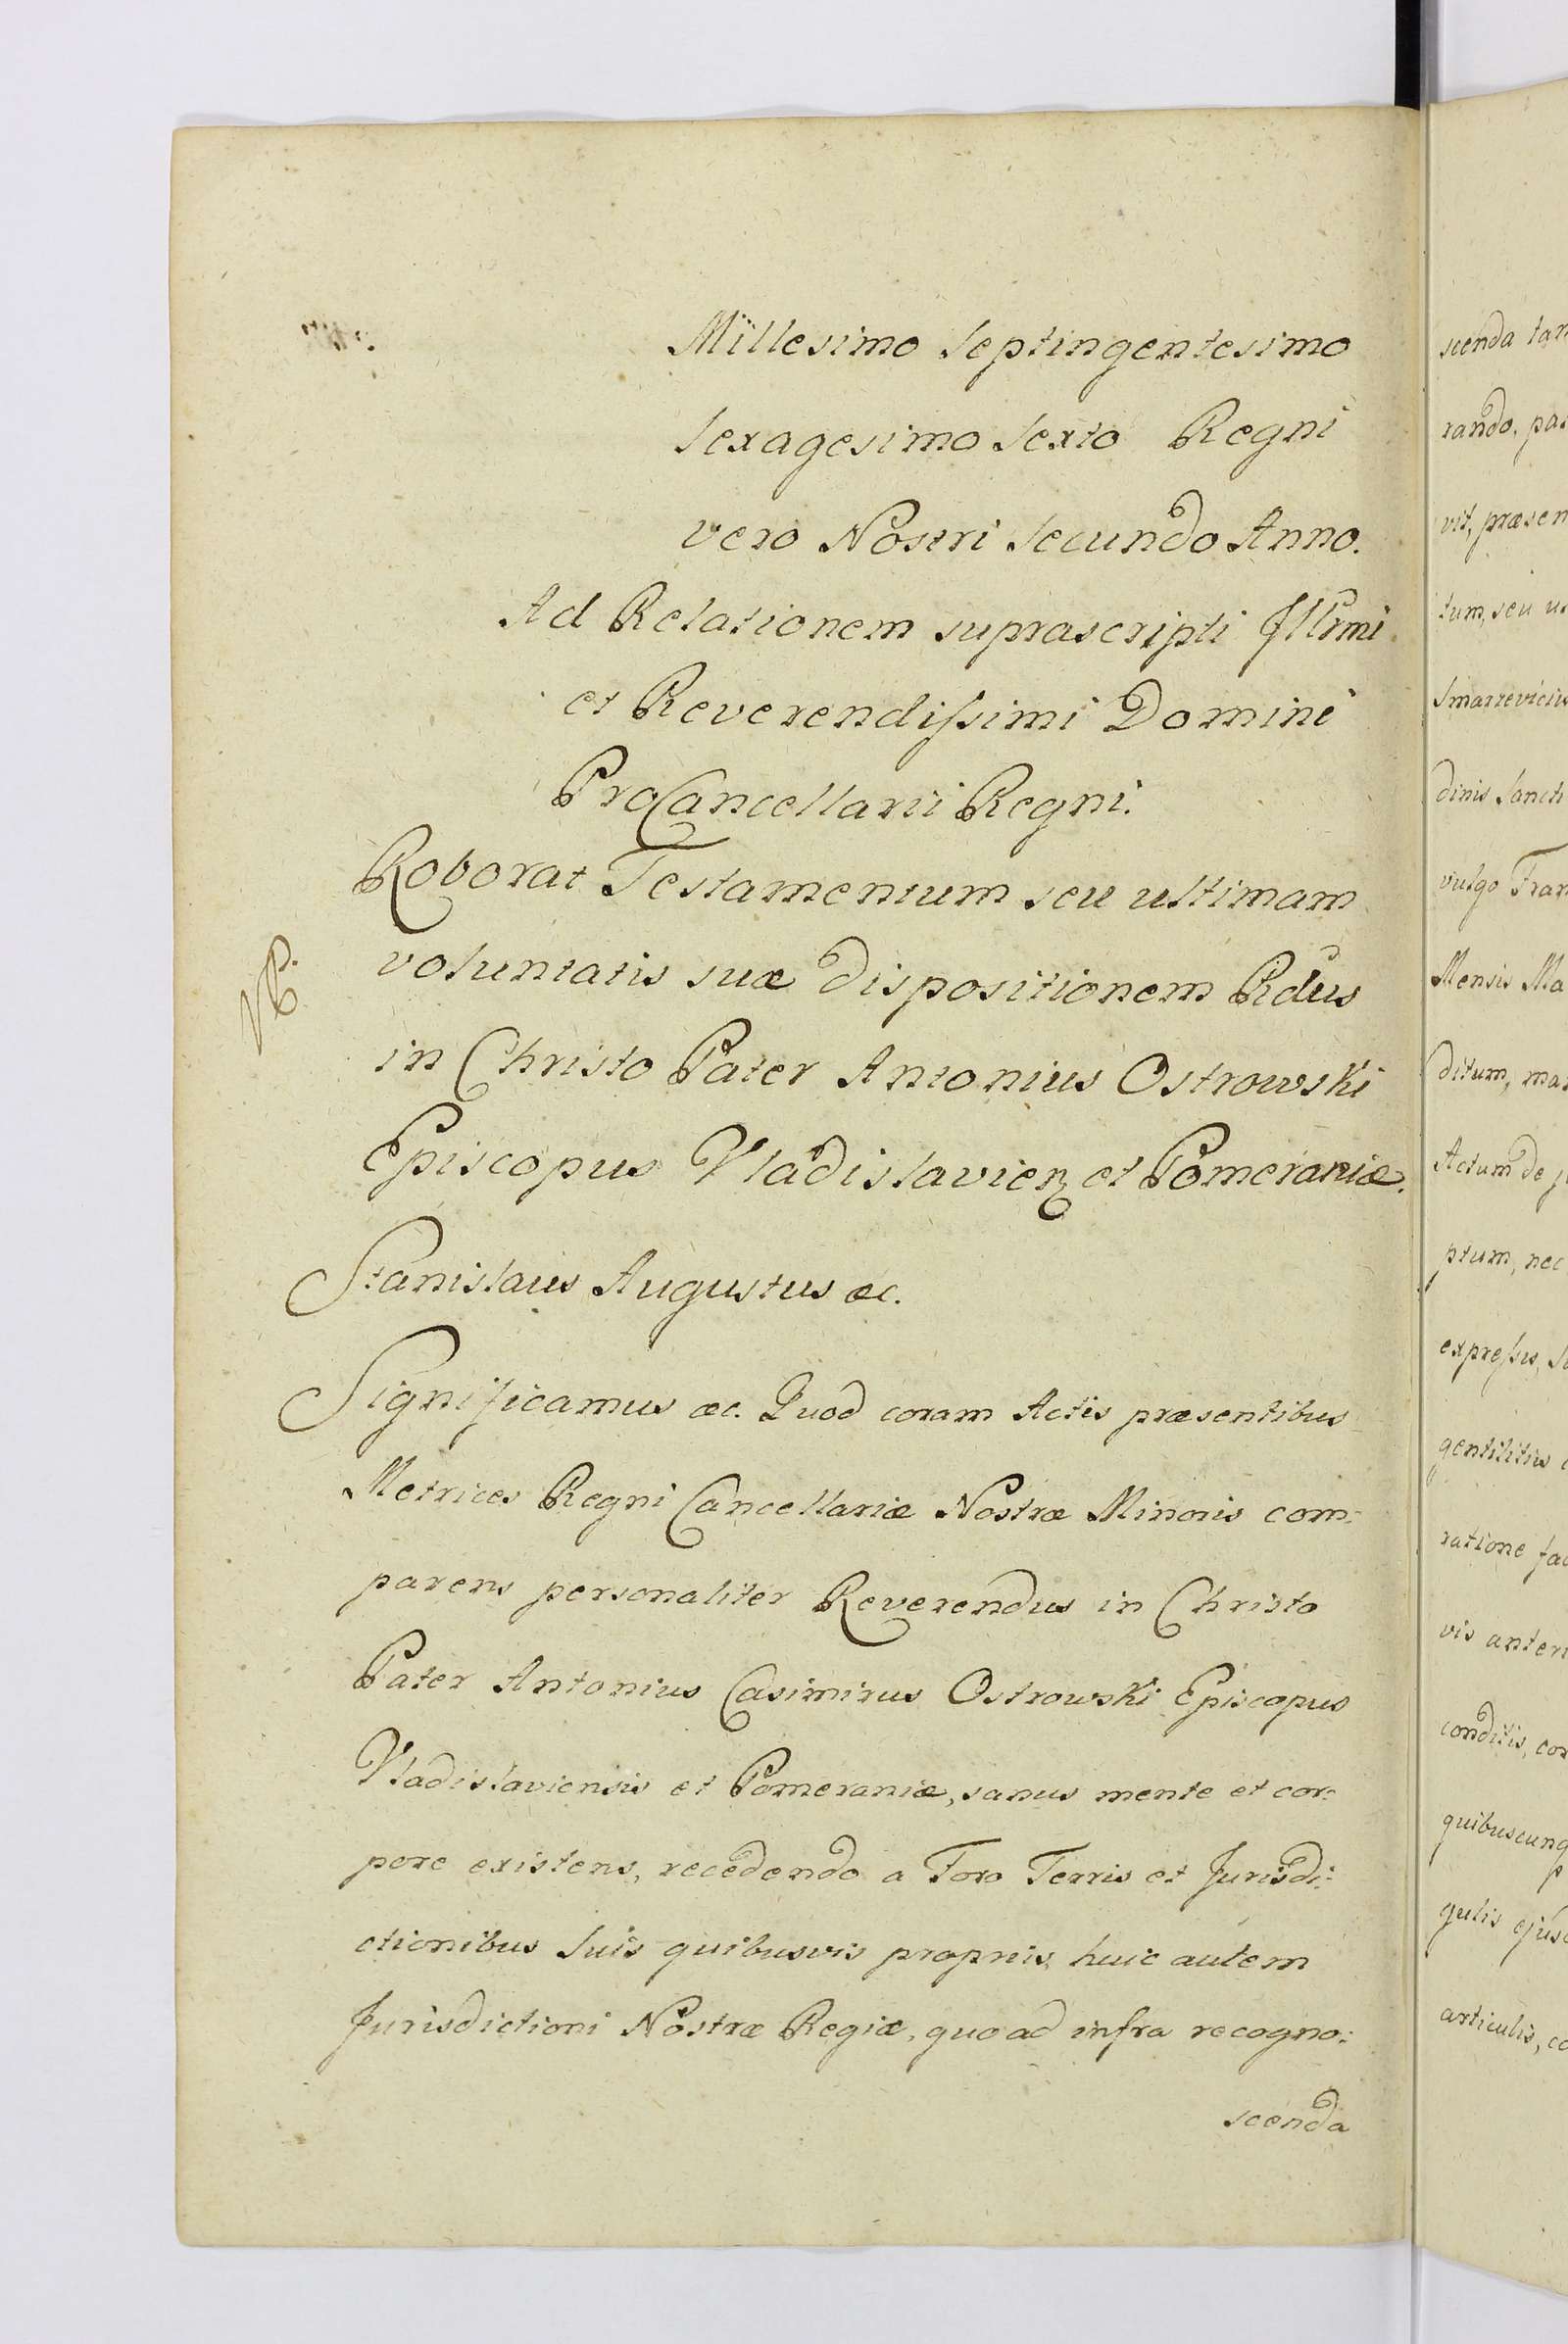 Millesimo Septingentesimo
Sexagesimo Sexto Regni
vero Nostri Secundo Anno.
Ad Relationem suprascripti Illrmi
et Reverendissimi Domini
ProCancellarii Regni.
Roborat Testamentum seu ultimam
voluntatis suæ dispositionem Rdus
in Christo Pater Antonius Ostrowski
Episcopus Vladislavien et Pomeraniæ.
Stanislaus Augustus &c.
Significamus &c. Quod coram Actis præsentibus
Metrices Regni Cancellariæ Nostræ Minoris com:
parens personaliter Reverendus in Christo
Pater Antonius Casimirus Ostrowski Episcopus
Vladislaviensis et Pomeraniæ, sanus mente et cor:
pore existens, recedendo a Foro Terris et Jurisdi:
ctionibus Suis quibusvis propriis, huic autem
Jurisdictioni Nostræ Regiæ, quo ad infra recogno:
scenda
scenda
rando,
vit,
tum, seu
dinis
vulgo
Mensis
ditum,
Actum de
ptum, nec
expressis,
gentilitiis
ratione
vis
conditis,
gulis
articulis,